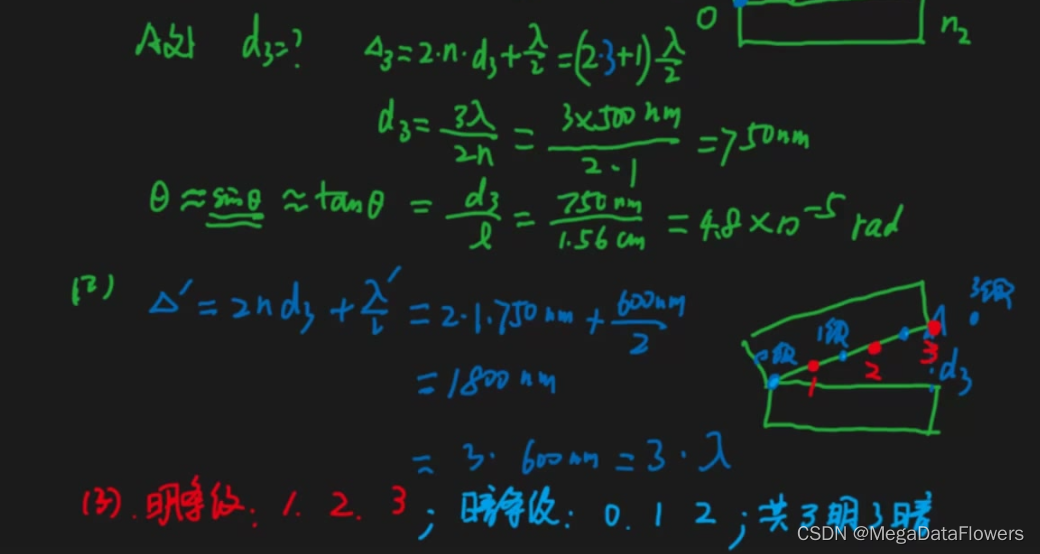 O
n₂
A处 d₃=? Δ₃=2·n·d₃+λ/2=(2·3+1)λ/2
d₃=3λ/2n=3×500nm/2·1=750nm
θ≈sinθ≈tanθ=d₃/l=750nm/1.56cm=4.8×10⁻⁵rad
(2) Δ'=2nd₃+λ'/2=2·1·750nm+600nm/2
=1800nm
=3·600nm=3·λ
3级
1级
0级
A
1
2
3
d₃
(3).明条纹:1.2.3;暗条纹:0.1 2;共3明3暗
CSDN @MegaDataFlowers